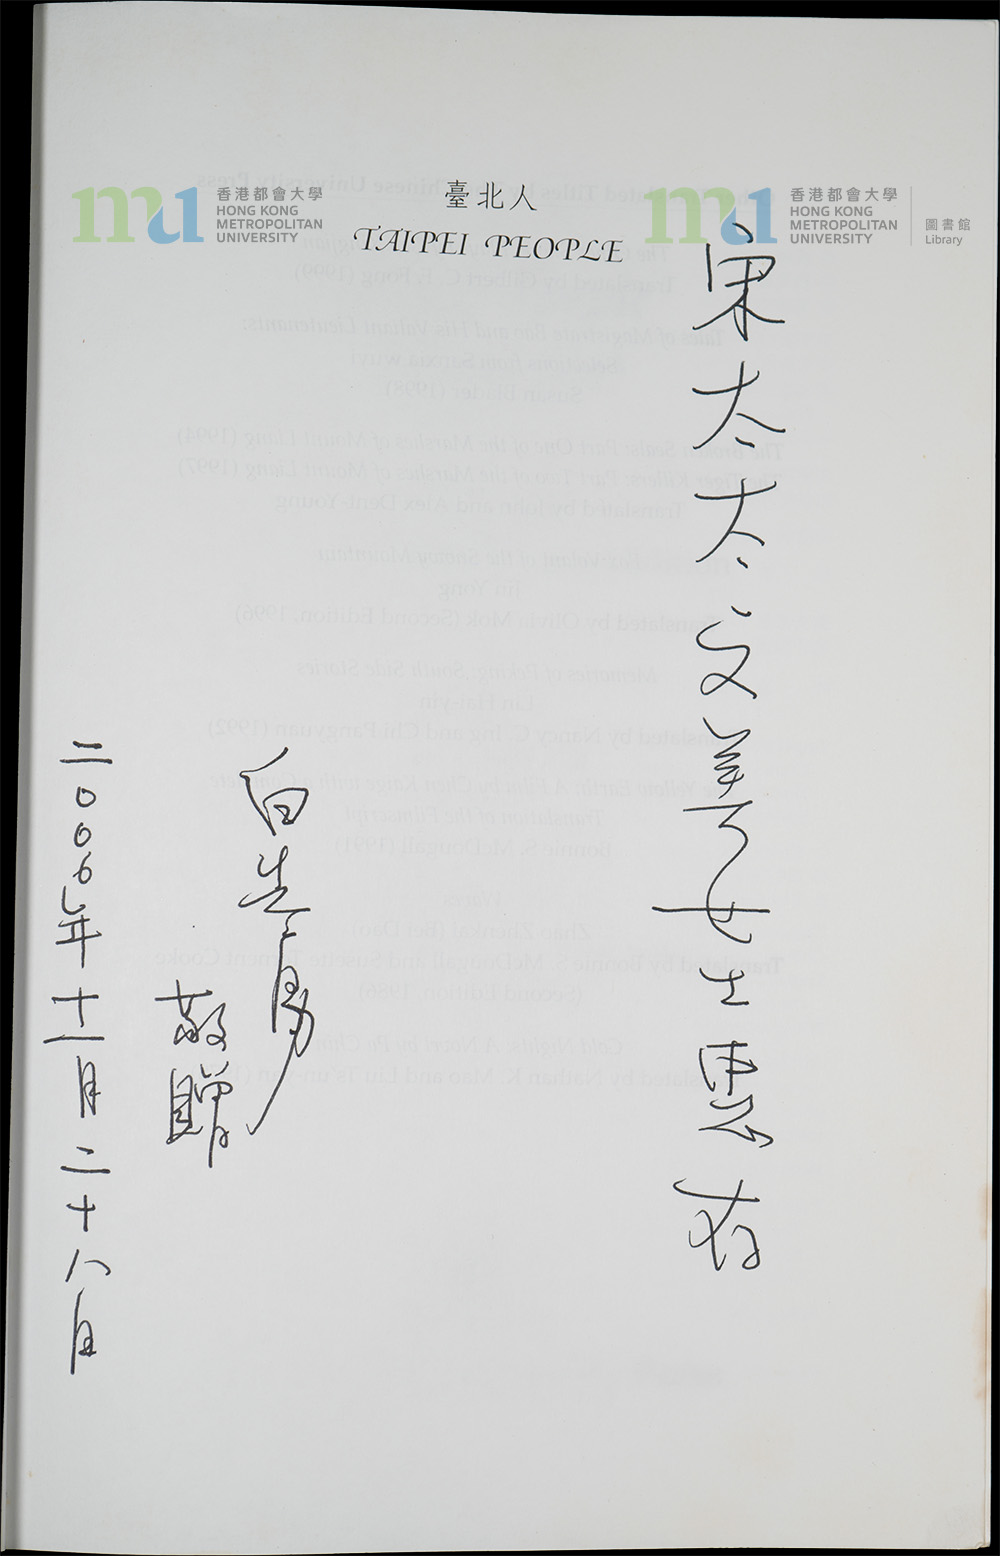 臺北人
TAIPEI PEOPLE
mu
香港都會大學
HONG KONG
METROPOLITAN
UNIVERSITY
mu
香港都會大學
HONG KONG
METROPOLITAN
UNIVERSITY
圖書館
Library
宋太太文美女士惠存
白先勇
敬贈
二006年十一月二十八日